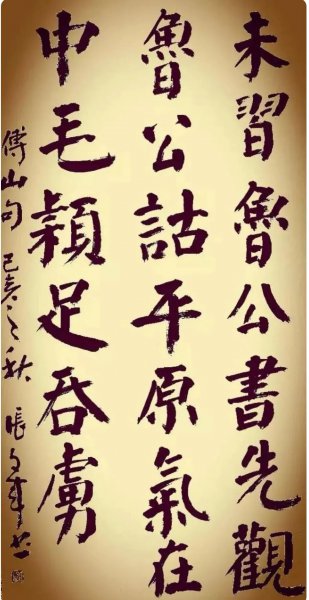 未習魯公書先觀
魯公詁平原氣在
中毛穎足吞虜
傅山句己亥之秋 張